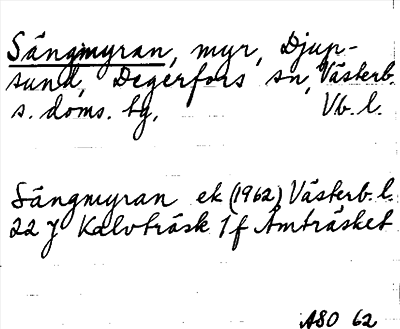 Sängmyran, myr, Djup-
sund, Degerfors sn, Västerb.
s. doms. bg, Vb. l.
Sängmyran ek (1962) Västerb. l.
22 J Kalvträsk 1 f Åmträsket
ASO 62